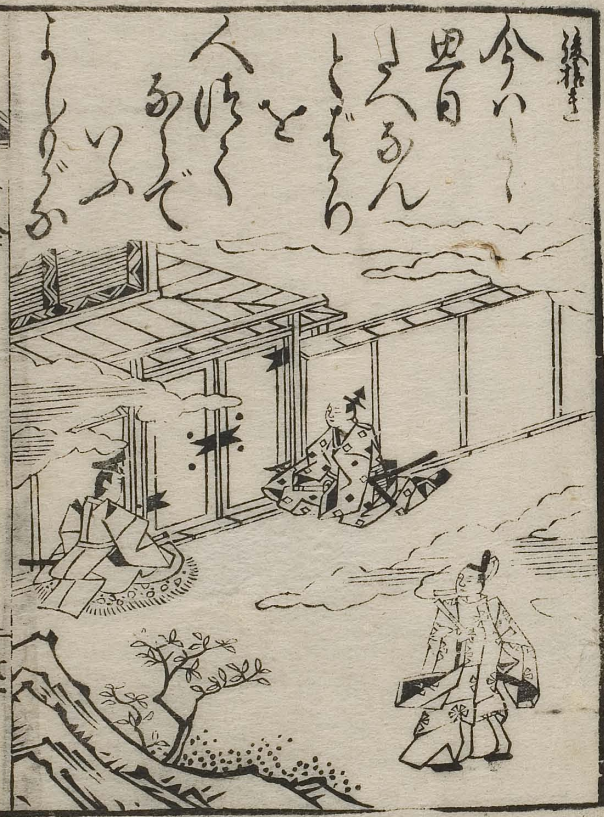 後拾遺
今ハたゝ
思ひ
たへなん
とばかり
を
人づて
ならで
いふ
よしもがな